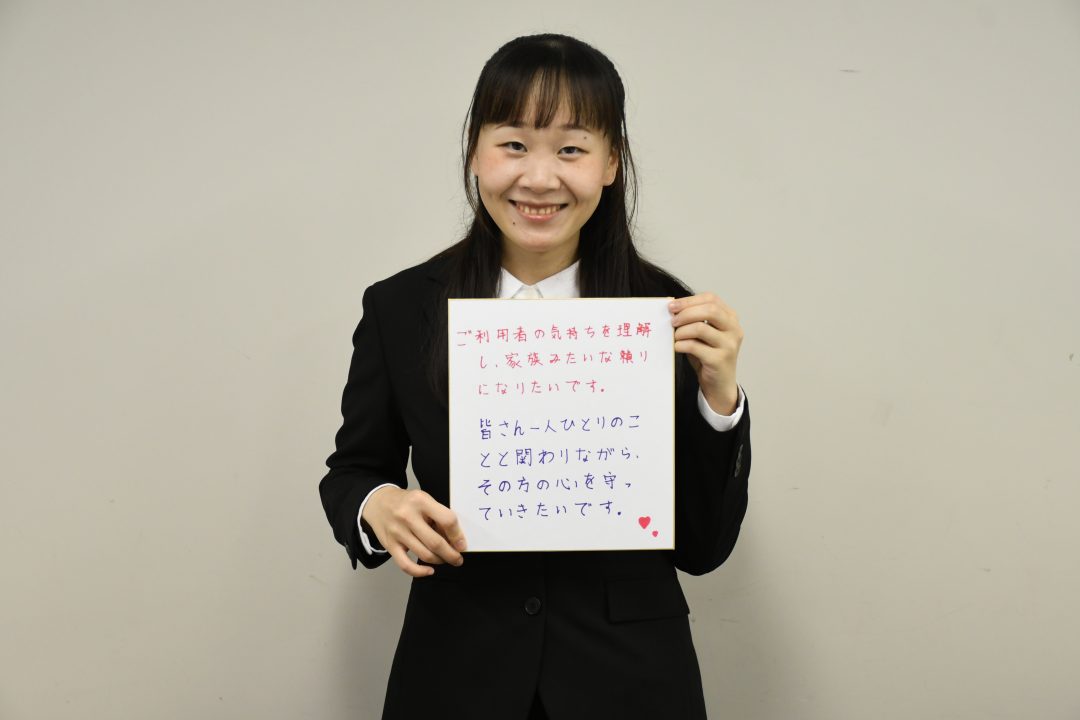 ご利用者の気持ちを理解
し、家族みたいな頼り
になりたいです。
皆さん一人ひとりのこ
とと関わりながら、
その方の心を守っ
ていきたいです。